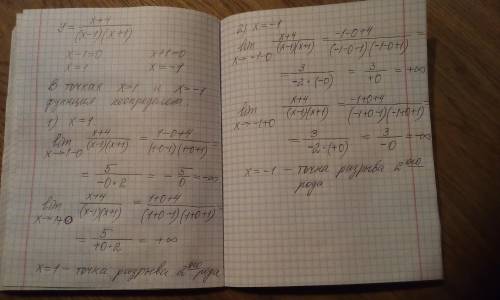 y = x+4 / (x-1)(x+1)
x-1=0 x+1=0
x=1 x=-1
В точках x=1 и x=-1
функция неопределен.
1) x=1
lim x→1-0 x+4 / (x-1)(x+1) = 1-0+4 / (1-0-1)(1-0+1) =
= 5 / -0·2 = -5/0 = -∞
lim x→1+0 x+4 / (x-1)(x+1) = 1+0+4 / (1+0-1)(1+0+1) =
= 5 / +0·2 = +∞
x=1 – точка разрыва 2ого рода
2) x=-1
lim x→-1-0 x+4 / (x-1)(x+1) = -1-0+4 / (-1-0-1)(-1-0+1) =
= 3 / -2·(-0) = 3 / +0 = +∞
lim x→-1+0 x+4 / (x-1)(x+1) = -1+0+4 / (-1+0-1)(-1+0+1) =
= 3 / -2·(+0) = 3 / -0 = -∞
x=-1 – точка разрыва 2ого
рода